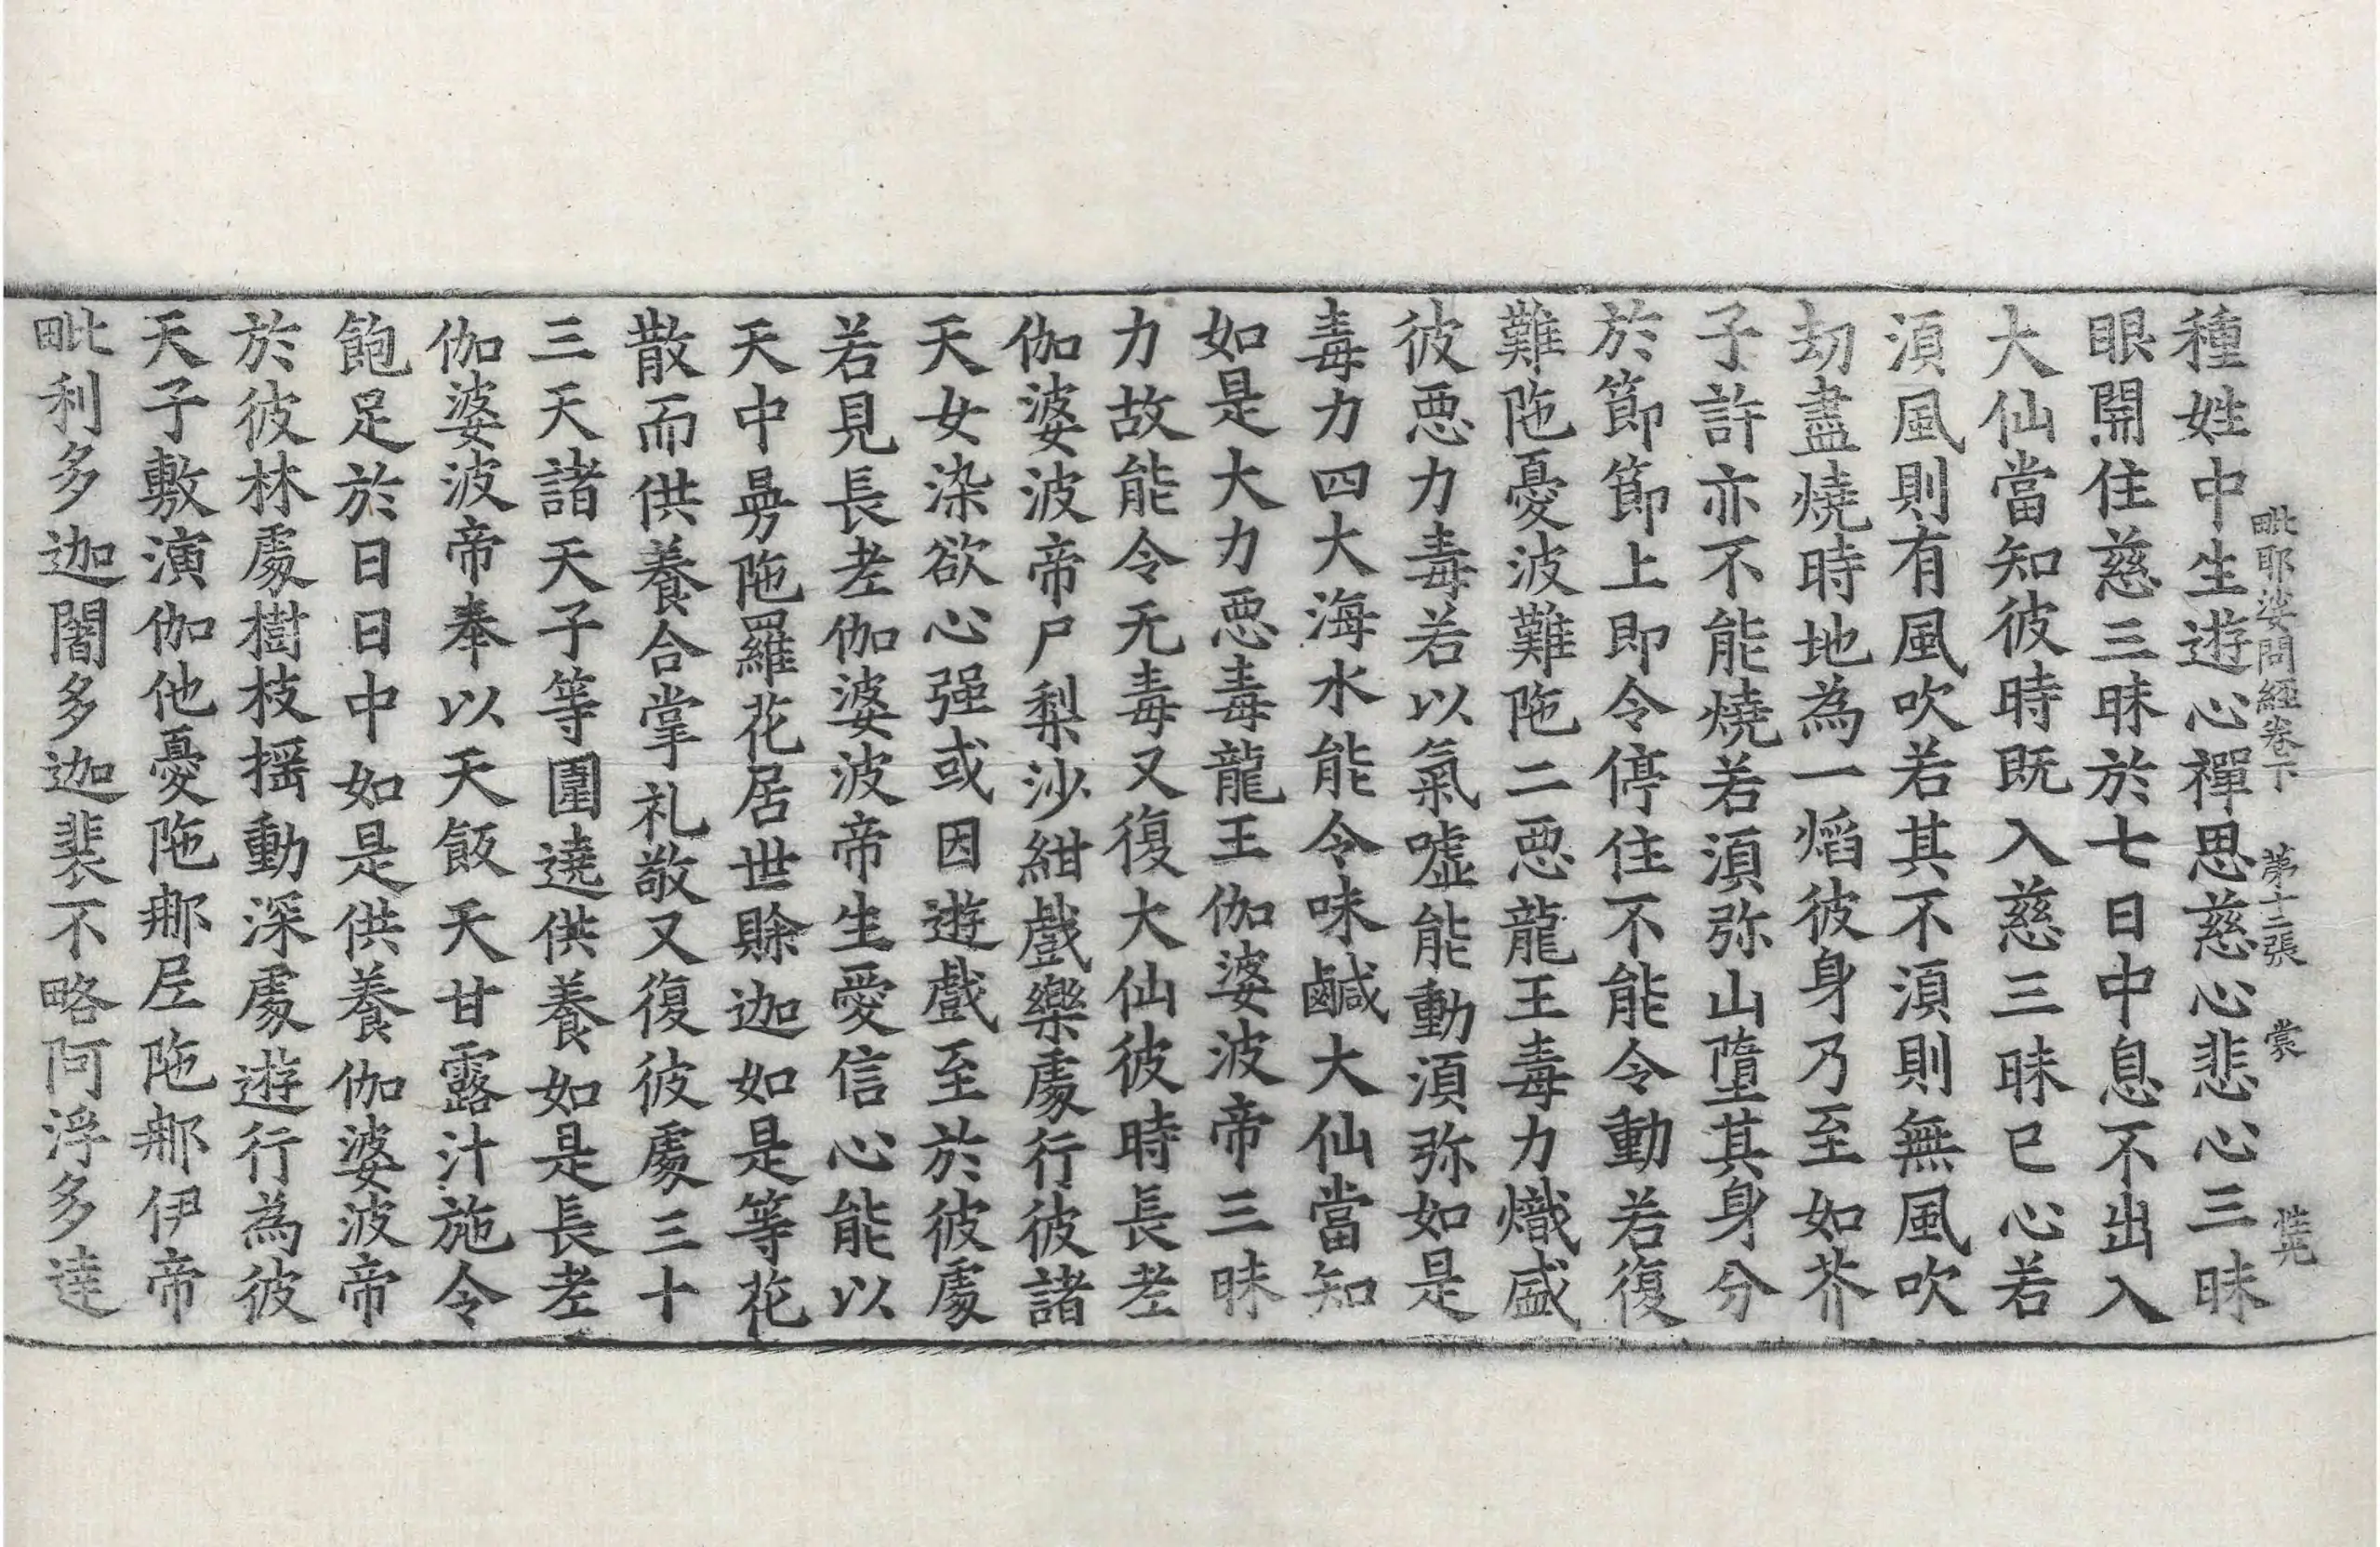 毗耶娑問經卷下 第十二張 裳
種姓中生遊心禪思慈心悲心三昧
眼開住慈三昧於七日中息不出入
大仙當知彼時既入慈三昧已心若
湏風則有風吹若其不湏則無風吹
劫盡燒時地為一焰彼身乃至如芥
子許亦不能燒若湏弥山墮其身分
於節節上即令停住不能令動若復
難陁憂波難陁二恶龍王毒力熾盛
彼恶力毒若以氣嘘能動湏弥如是
毒力四大海水能令味鹹大仙當知
如是大力恶毒龍王伽婆波帝三昧
力故能令无毒又復大仙彼時長老
伽婆波帝尸梨沙紺戲樂處行彼諸
天女染欲心强或因遊戲至於彼處
若見長老伽婆波帝生愛信心能以
天中曼陁羅花居世賖迦如是等花
散而供養合掌礼敬又復彼處三十
三天諸天子等圍遶供養如是長老
伽婆波帝奉以天飯天甘露汁施令
飽足於日日中如是供養伽婆波帝
於彼林處樹枝揺動深處遊行為彼
天子敷演伽他憂陁那𡰱陁那伊帝
毗利多迦闍多迦裴不略阿浮多達